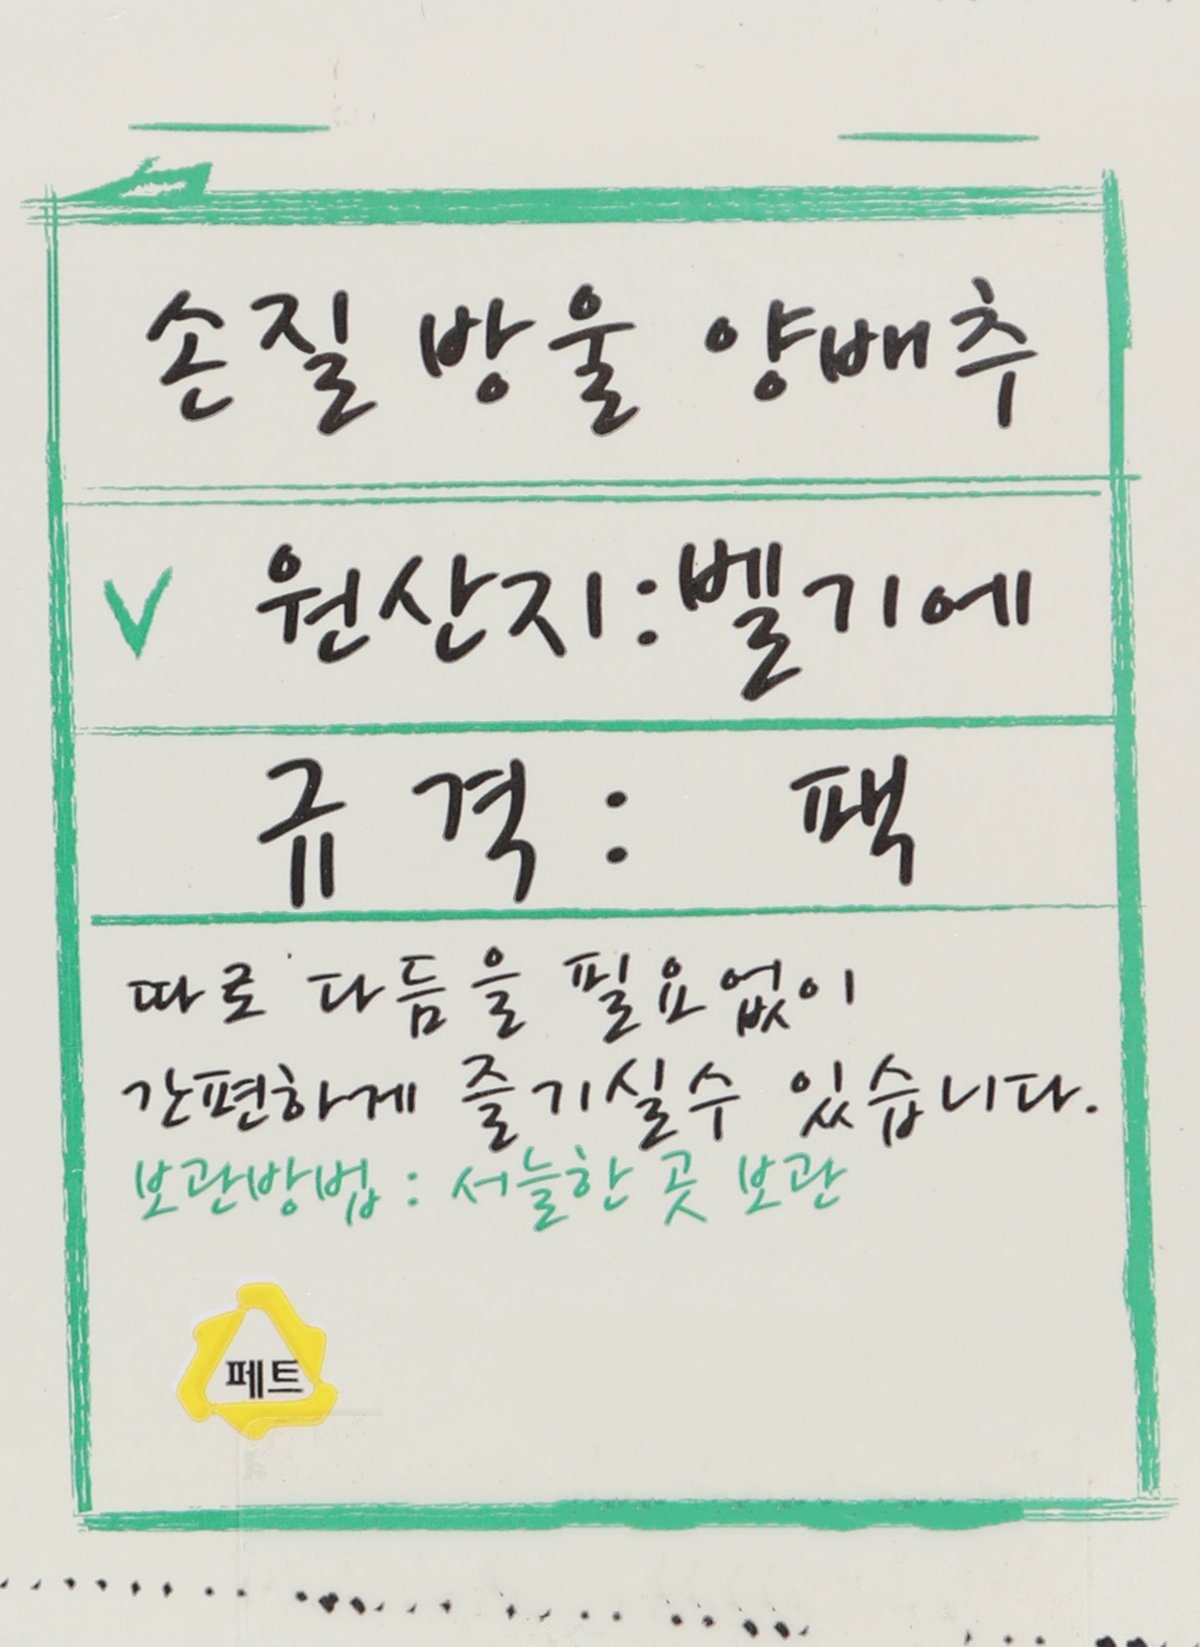 손질 방울 양배추
V 원산지:벨기에
규격: 팩
따로 다듬을 필요없이
간편하게 즐기실수 있습니다.
보관방법 : 서늘한 곳 보관
페트